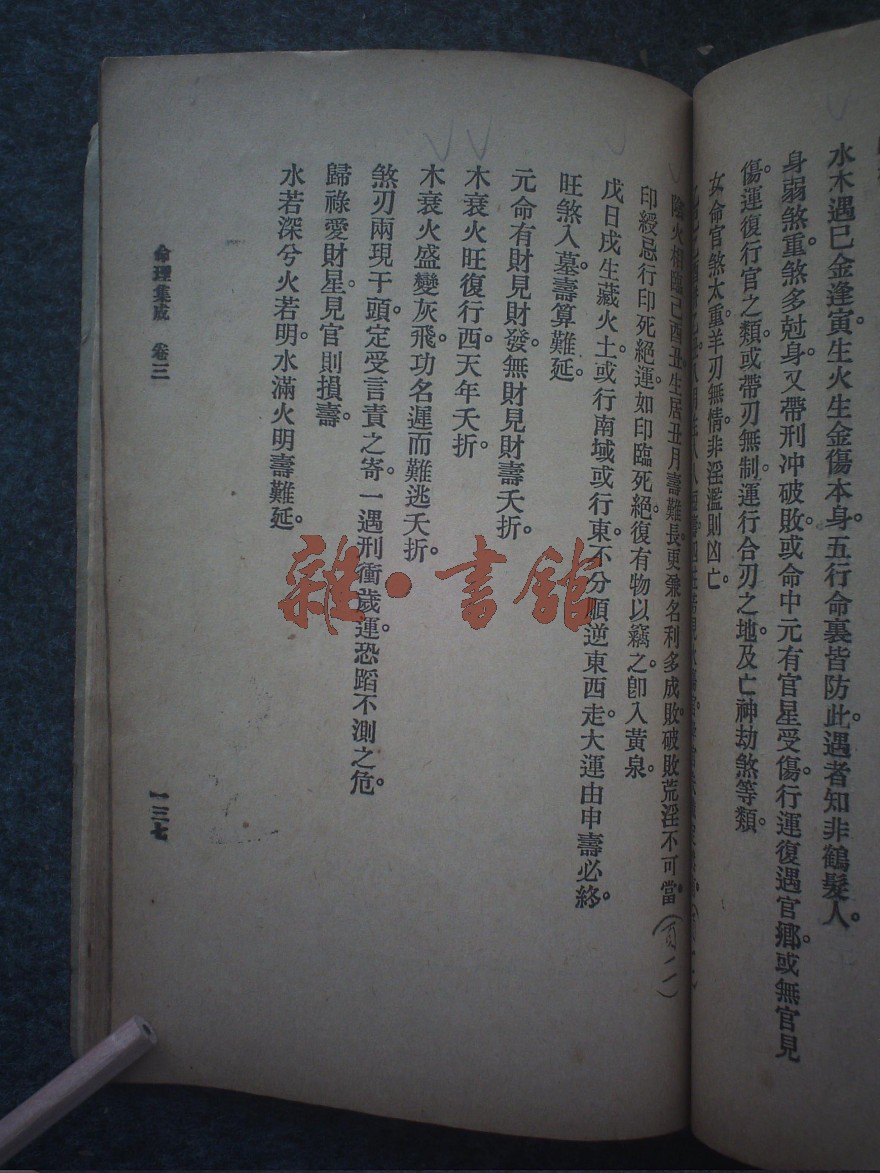 水木遇巳金逢寅。生火生金傷本身。五行命裏皆防此。遇者知非鶴髮人。
身弱煞重煞多尅身。又帶刑冲破敗。或命中元有官星受傷。行運復遇官鄉。或無官見
傷。運復行官之類。或帶刃無制。運行合刃之地。及亡神劫煞等類。
女命官煞太重。羊刃無情。非淫濫則凶亡。
陰火相臨巳酉丑。生居丑月壽難長。更兼名利多成敗。破敗荒淫不可當。
印綬忌行印死絕運。如印臨死絕。復有物以竊之。卽入黃泉。
戊日戌生藏火土。或行南域或行東。不分順逆東西走。大運由申壽必終。
旺煞入墓。壽算難延。
元命有財見財發。無財見財壽夭折。
木衰火旺復行西。天年夭折。
木衰火盛變灰飛。功名遲而難逃夭折。
煞刃兩現干頭。定受言責之寄。一遇刑衝歲運。恐蹈不測之危。
歸祿愛財星。見官則損壽。
水若深兮火若明。水滿火明壽難延。
命理集成 卷三
一三七
雜·書館